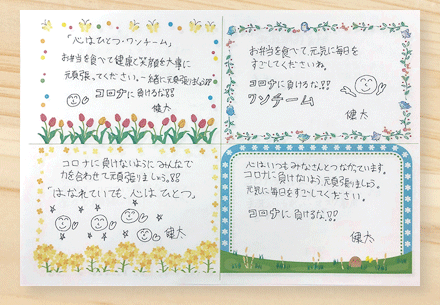 「心はひとつ・ワンチーム」
お弁当を食べて健康で笑顔を大事に
元気に頑張ってください。一緒に頑張りましょう!!
コロナに負けるな!!
健太
お弁当を食べて、元気に毎日を
すごしてくださいね。
コロナに負けるな!!
ワンチーム
健太
コロナに負けないようにみんなで
力を合わせて頑張りましょう。!!
「はなれていても、心はひとつ」
健太
心はいつもみなさんとつながっています。
コロナに負けないよう頑張りましょう。
元気に毎日をすごしてください。
コロナに負けるな!!
健太